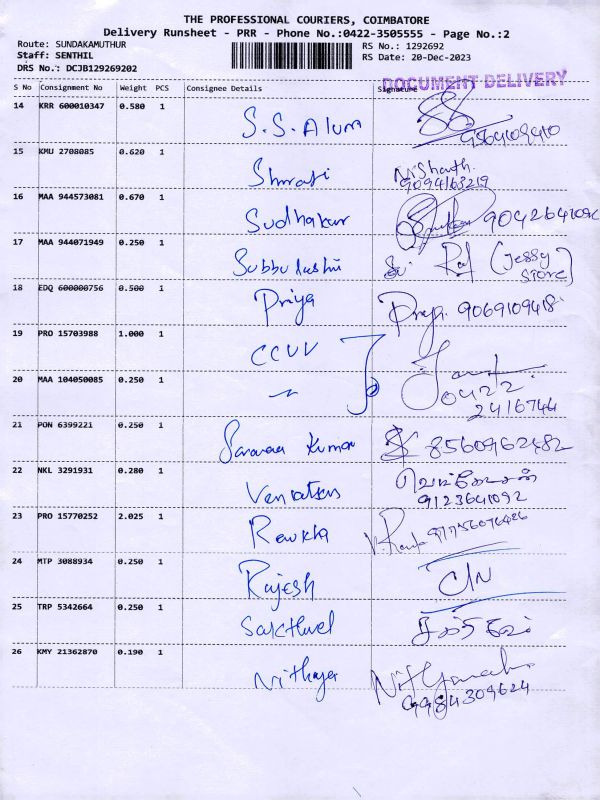 THE PROFESSIONAL COURIERS, COIMBATORE
Delivery Runsheet - PRR - Phone No.:0422-3505555 - Page No.:2
Route: SUNDAKAMUTHUR RS No.: 1292692
Staff: SENTHIL RS Date: 20-Dec-2023
DRS No.: DCJB129269202
DOCUMENT DELIVERY
S No Consignment No Weight PCS Consignee Details Signature
14 KRR 600010347 0.580 1
S.S. Alum
15 KMU 2708085 0.620 1
Nishanth.
9094163219
16 MAA 944573081 0.670 1
Sudhakar
17 MAA 944071949 0.250 1
Sri Raj (Jessy
Store)
18 EDQ 600000756 0.500 1
Priya Priya. 9069109418
19 PRO 15703988 1.000 1
CCUV
20 MAA 104050085 0.250 1
0422
2416744
21 PON 6399221 0.250 1
Kumar 8560962482
22 NKL 3291931 0.280 1
9123641092
23 PRO 15770252 2.025 1
24 MTP 3088934 0.250 1
Rajesh
25 TRP 5342664 0.250 1
Sakthivel சக்திவேல்
26 KMY 21362870 0.190 1
Nithya
9984309624